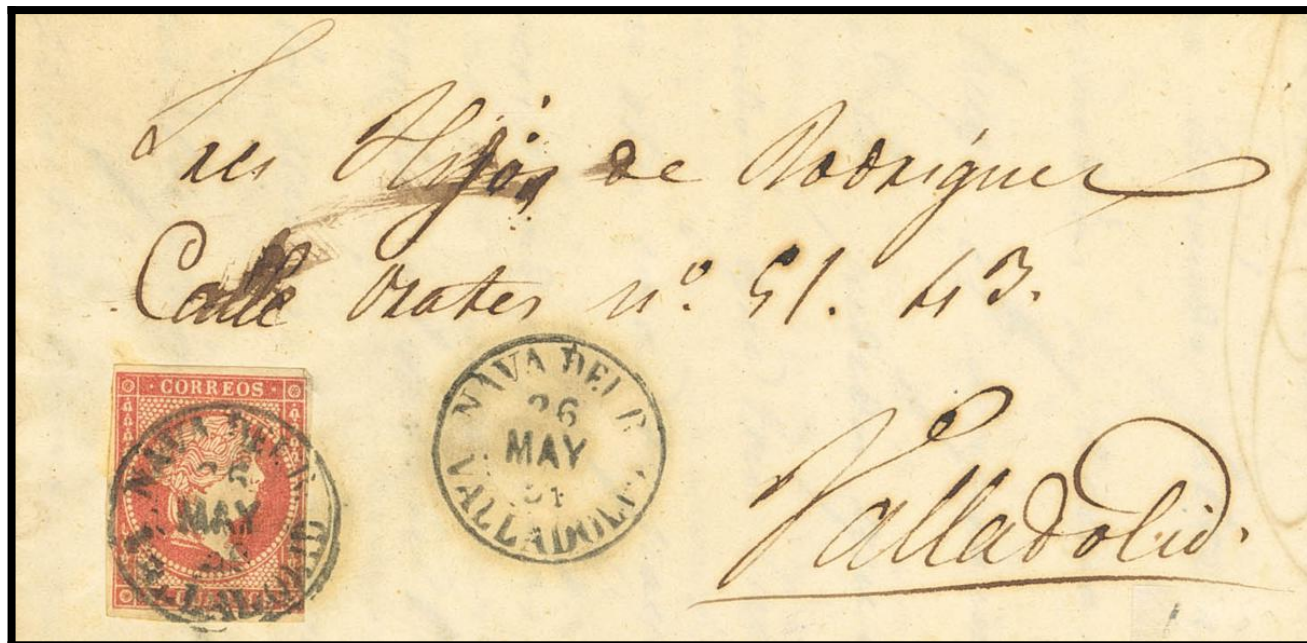 Sres Hijos de Rodriguez
Calle Orates nº. 51. 43.
CORREOS
NAVA DEL R.
26
MAY
VALLADOLID.
NAVA DEL R.
26
MAY
Valladolid.